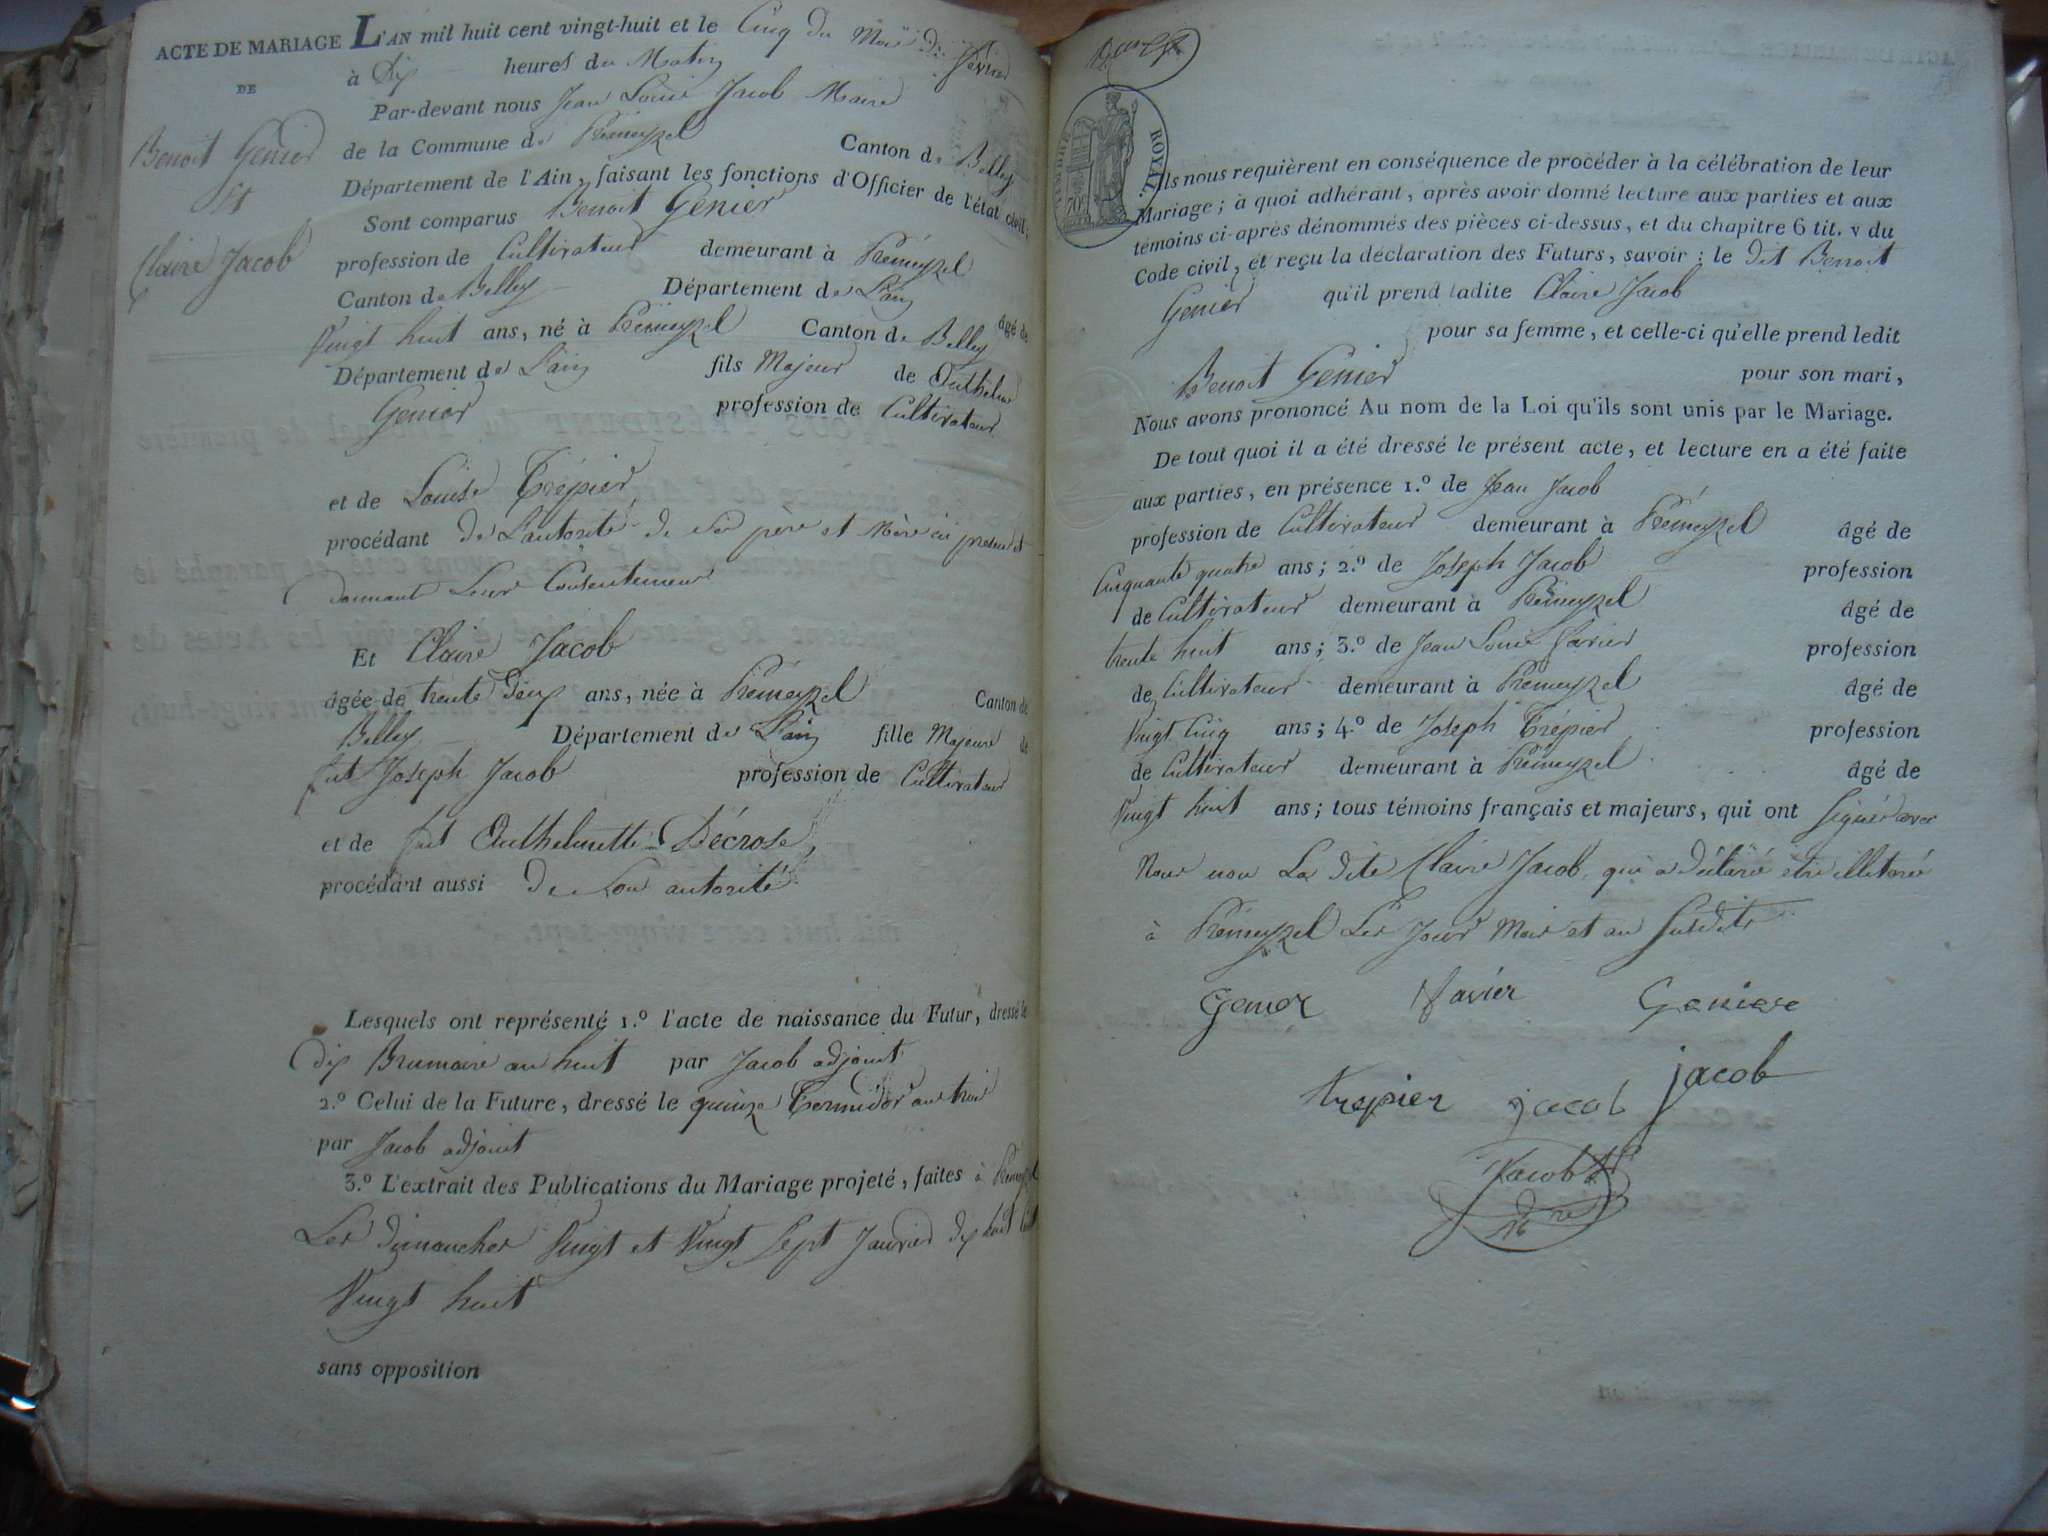 ACTE DE MARIAGE
DE
Benoit Genier
Et
Claire Jacob
L'AN mil huit cent vingt-huit et le Cinq du Mois de fevrier
à Dix heures du Matin
Par-devant nous Jean Louis Jacob Maire
de la Commune de Prémeyzel Canton de Belley
Département de l'Ain, faisant les fonctions d'Officier de l'état civil,
Sont comparus Benoit Genier
profession de Cultivateur demeurant à Prémeyzel
Canton de Belley Département de L'ain
âgé de
Vingt huit ans, né à Prémeyzel Canton de Belley
Département de L'ain fils Majeur de Anthelme
Genier profession de Cultivateur
et de Louise Trépier
procédant de L'autorité de Ses père et Mère ici présent et
donnant Leur Consentement
Et Claire Jacob
âgée de trente deux ans, née à Prémeyzel Canton de
Belley Département de L'ain fille Majeure de
fut Joseph Jacob profession de Cultivateur
et de fut Anthelmette Décrose
procédant aussi De Son autorité
Lesquels ont représenté 1.º l'acte de naissance du Futur, dressé le
dix Brumaire an huit par Jacob adjoint
2.º Celui de la Future, dressé le quinze Termidor an trois
par Jacob adjoint
3.º L'extrait des Publications du Mariage projeté, faites à Prémeyzel
Les dimanches Vingt et Vingt Sept Janvier dix huit Cent
Vingt huit
sans opposition
TIMBRE ROYAL
70
Ils nous requièrent en conséquence de procéder à la célébration de leur
Mariage; à quoi adhérant, après avoir donné lecture aux parties et aux
témoins ci-après dénommés des pièces ci-dessus, et du chapitre 6 tit. v du
Code civil, et reçu la déclaration des Futurs, savoir : le dit Benoit
Genier qu'il prend ladite Claire Jacob
pour sa femme, et celle-ci qu'elle prend ledit
Benoit Genier pour son mari,
Nous avons prononcé Au nom de la Loi qu'ils sont unis par le Mariage.
De tout quoi il a été dressé le présent acte, et lecture en a été faite
aux parties, en présence 1.º de Jean Jacob
profession de Cultivateur demeurant à Prémeyzel âgé de
Cinquante quatre ans; 2.º de Joseph Jacob profession
de Cultivateur demeurant à Prémeyzel âgé de
trente huit ans; 3.º de Jean Louis Savier profession
de Cultivateur demeurant à Prémeyzel âgé de
Vingt Cinq ans; 4.º de Joseph Trépier profession
de Cultivateur demeurant à Prémeyzel âgé de
Vingt huit ans; tous témoins français et majeurs, qui ont Signés avec
Nous non La dite Claire Jacob qui a Déclaré etre illetrée
à Prémeyzel Les Jour Mois et an Susdits
Genier Savier Geniere
trepier jacob jacob
Jacob